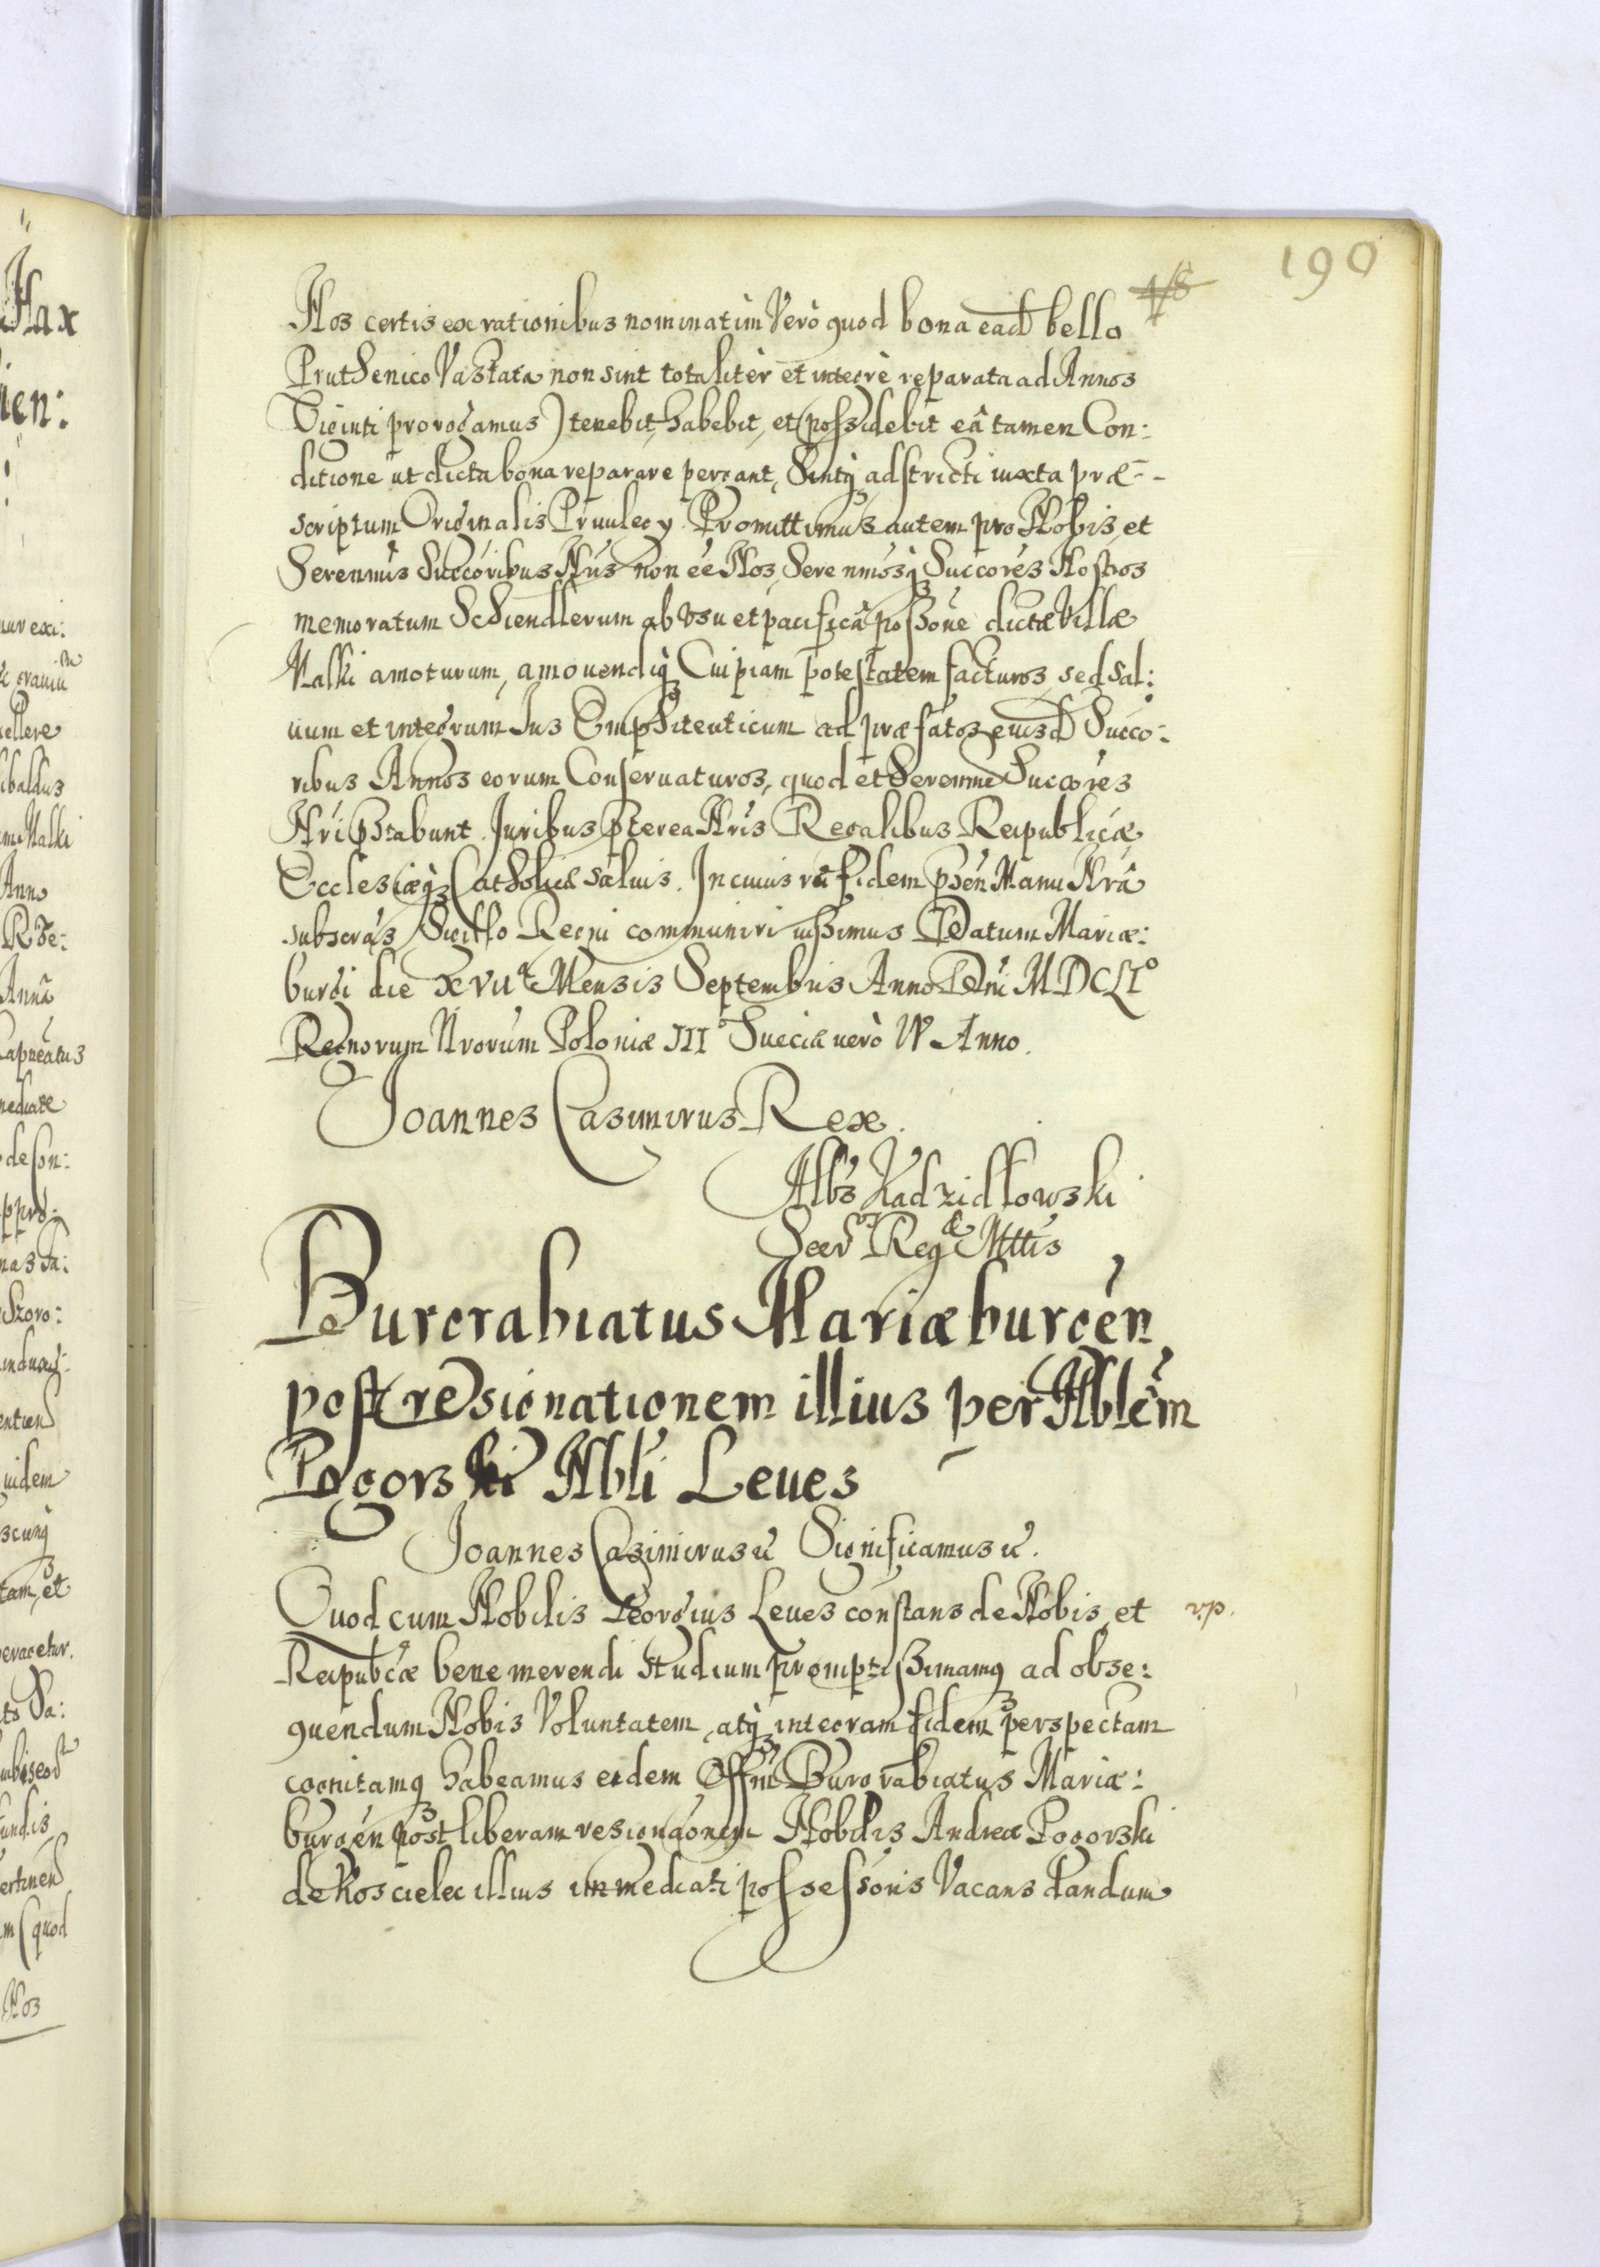 190
Nos certis ex rationibus nominatim Verò quod bona ead bello
Pruthenico Vastata non sint totalitèr et integrè reparata ad Annos
Viginti prorogamus) tenebit, habebit, et possidebit eâ tamen Con:
ditione ut dicta bona reparare pergant, Sintq adstricti iuxta præ-
scriptum Originalis Priuilegy. Promittimus autem pro Nobis, et
Serenmis Succoribus Nris non eé Nos, Serenmosq Succorés Nostros
memoratum Schiendlerum ab Vsu et pacificâ possone dictæ Villæ
Nalki amoturum, amouendiq Cuipiam potestatem facturos, sed sal:
uum et integrum Ius Emphiteuticum ad præfatos eiusd Succo:
ribus Annos eorum Conseruaturos, quod et Serenmi Succores
Nri pstabunt. Juribus pterea Nris Regalibus Reipublicæ,
Ecclesiæq Catholicæ saluis. In cuius rei fidem psen Manu Nrâ
subscrás Sigillo Regni communiri iussimus Datum Mariæ:
burgi die XVII Mensis Septembris Anno Dni MDCLI°
Regnorum Nrorum Poloniæ III° Sueciæ uerò IV Anno.
Joannes Casimirus Rex.
Albs Kadzidlowski
Secr Regæ Mttis
Burgrabiatus Mariæburgén
post resignationem illius per Nblém
Pogorski Nbli Leues
Joannes Casimirus &c Significamus &c.
Quod cum Nobilis Georgius Leues constans de Nobis, et
vp.
Reipubcæ bene merendi studium promptissimamq ad obse:
quendum Nobis Voluntatem, atq integram fidem perspectam
cognitamq habeamus eidem Offm Burgrabiatus Mariæ:
burgén post liberam resignaonem Nobilis Andreæ Pogorski
de Koscielec illius immediati possessoris Vacans dandum